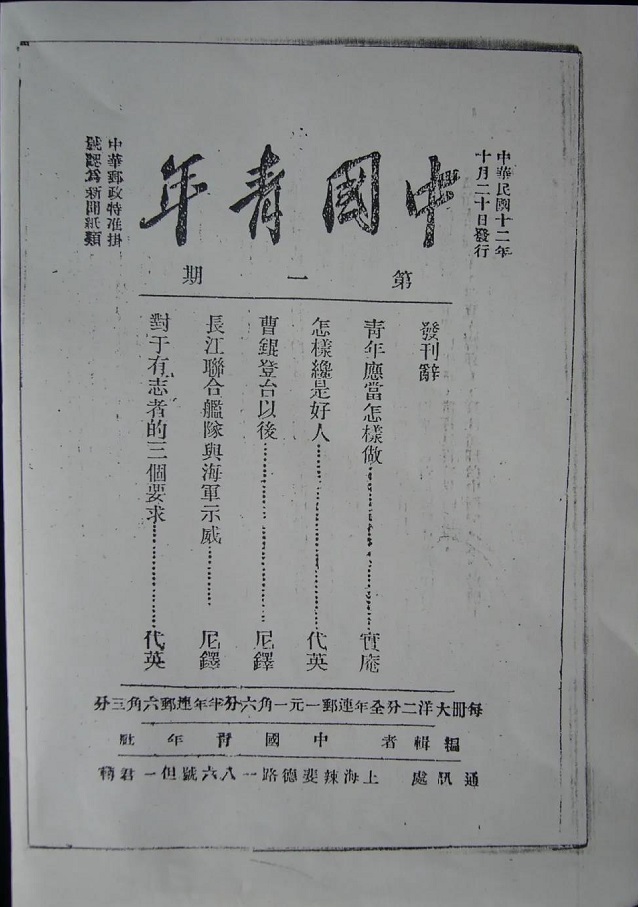 中華民國十二年
十月二十日發行
中國青年
中華郵政特准掛
號認為新聞紙類
第一期
發刊辭
青年應當怎樣做……………………實庵
怎樣纔是好人……………………代英
曹錕登台以後……………………尼鐸
長江聯合艦隊與海軍示威…………尼鐸
對于有志者的三個要求………………代英
每冊大洋二分全年連郵一元一角六分半年連郵六角三分
編輯者 中國青年社
通訊處 上海辣斐德路一八六號但一君轉